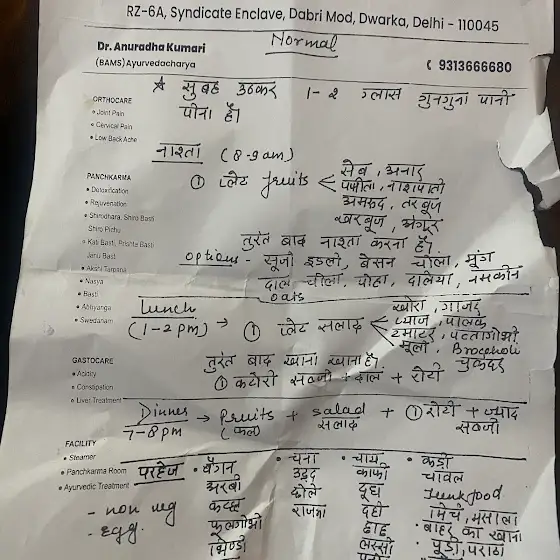 RZ-6A, Syndicate Enclave, Dabri Mod, Dwarka, Delhi - 110045
Normal
Dr. Anuradha Kumari
(BAMS) Ayurvedacharya
9313666680
☆ सुबह उठकर 1-2 ग्लास गुनगुना पानी
पीना है।
ORTHOCARE
• Joint Pain
• Cervical Pain
• Low Back Ache
नाश्ता (8-9am)
① प्लेट fruits < सेब, अनार
पपीता, नाशपाती
अमरूद, तरबूज
खरबूज, अंगूर
PANCHKARMA
• Detoxification
• Rejuvenation
• Shirodhara, Shiro Basti
Shiro Pichu
• Kati Basti, Prishta Basti
Janu Basti
• Akshi Tarpana
• Nasya
• Basti
• Abhyanga
• Swedanam
तुरंत बाद नाश्ता करना है।
options - सूजी इडली, बेसन चीला, मूंग
दाल चीला, पोहा, दलिया, नमकीन
oats
Lunch
(1-2pm) → ① प्लेट सलाद < खीरा, गाजर
प्याज, पालक
टमाटर, पत्तागोभी
मूली, Broccholi
चुकंदर
तुरंत बाद खाना खाना है।
① कटोरी सब्जी + दाल + रोटी
GASTOCARE
• Acidity
• Constipation
• Liver Treatment
Dinner → Fruits + salad + ① रोटी + ज्याद
7-8pm (फल) सलाद सब्जी
FACILITY
• Steamer
• Panchkarma Room
• Ayurvedic Treatment
परहेज • बैंगन • चना • चाय • कढ़ी
अरबी उड़द काफी चावल
- non veg कटहल छोले दूध Junkfood
- egg. फूलगोभी राजमा दही मिर्च, मसाला
भिण्डी छाछ • बाहर का खाना
लस्सी • पूड़ी, पराठा